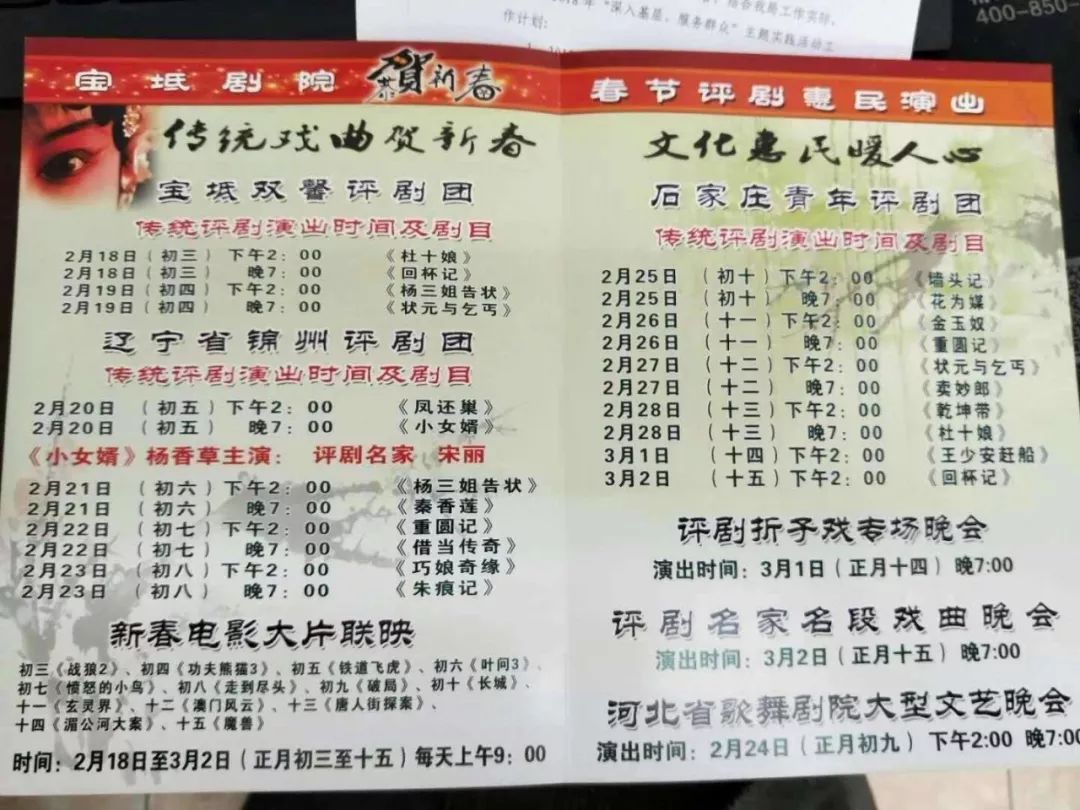 结合我局工作实际，
2018年“深入基层、服务群众”主题实践活动工
作计划：
400-850-
宝坻剧院 恭贺新春
传统戏曲贺新春
宝坻双馨评剧团
传统评剧演出时间及剧目
2月18日（初三）下午2：00 《杜十娘》
2月18日（初三） 晚7：00 《回杯记》
2月19日（初四）下午2：00 《杨三姐告状》
2月19日（初四） 晚7：00 《状元与乞丐》
辽宁省锦州评剧团
传统评剧演出时间及剧目
2月20日（初五）下午2：00 《凤还巢》
2月20日（初五） 晚7：00 《小女婿》
《小女婿》杨香草主演： 评剧名家 宋丽
2月21日（初六）下午2：00 《杨三姐告状》
2月21日（初六） 晚7：00 《秦香莲》
2月22日（初七）下午2：00 《重圆记》
2月22日（初七） 晚7：00 《借当传奇》
2月23日（初八）下午2：00 《巧娘奇缘》
2月23日（初八） 晚7：00 《朱痕记》
新春电影大片联映
初三《战狼2》、初四《功夫熊猫3》、初五《铁道飞虎》、初六《叶问3》、
初七《愤怒的小鸟》、初八《走到尽头》、初九《破局》、初十《长城》、
十一《玄灵界》、十二《澳门风云》、十三《唐人街探案》、
十四《湄公河大案》、十五《魔兽》
时间：2月18日至3月2日（正月初三至十五）每天上午9：00
春节评剧惠民演出
文化惠民暖人心
石家庄青年评剧团
传统评剧演出时间及剧目
2月25日（初十）下午2：00 《墙头记》
2月25日（初十） 晚7：00 《花为媒》
2月26日（十一）下午2：00 《金玉奴》
2月26日（十一） 晚7：00 《重圆记》
2月27日（十二）下午2：00 《状元与乞丐》
2月27日（十二） 晚7：00 《卖妙郎》
2月28日（十三）下午2：00 《乾坤带》
2月28日（十三） 晚7：00 《杜十娘》
3月1日（十四）下午2：00 《王少安赶船》
3月2日（十五）下午2：00 《回杯记》
评剧折子戏专场晚会
演出时间：3月1日（正月十四）晚7:00
评剧名家名段戏曲晚会
演出时间：3月2日（正月十五）晚7:00
河北省歌舞剧院大型文艺晚会
演出时间：2月24日（正月初九） 下午2:00 晚7:00